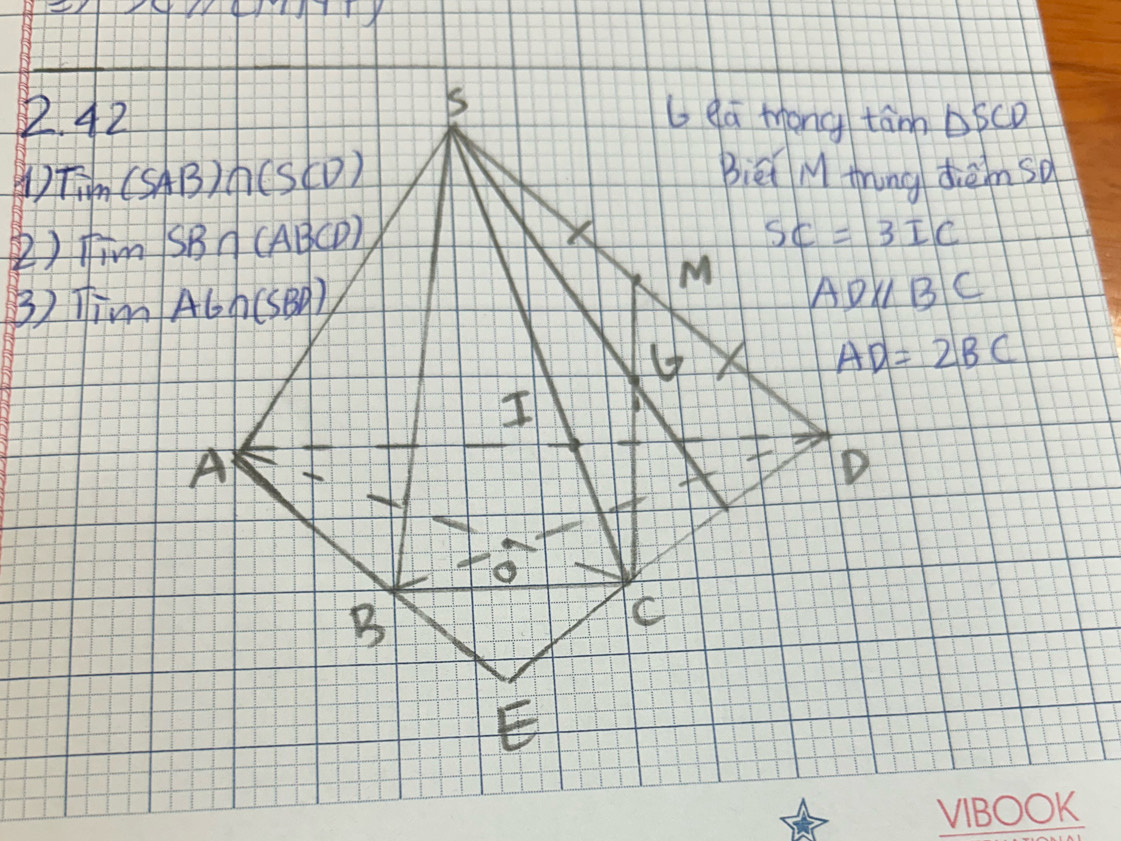 2.42
1) Tìm (SAB)∩(SCD)
2) Tìm SB∩(ABCD)
3) Tìm AG∩(SBD)
G là trọng tâm ΔSCD
Biết M trung điểm SD
SC = 3IC
AD // BC
AD = 2BC
S
M
G
I
A
D
O
B
C
E
VIBOOK